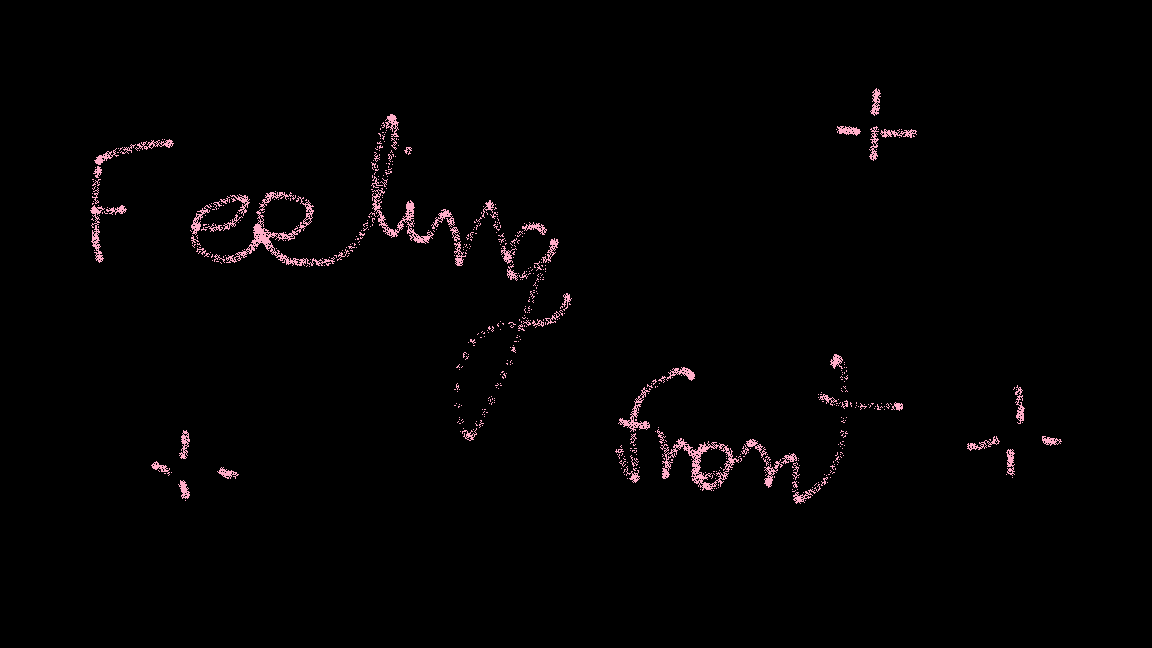 Feeling
front